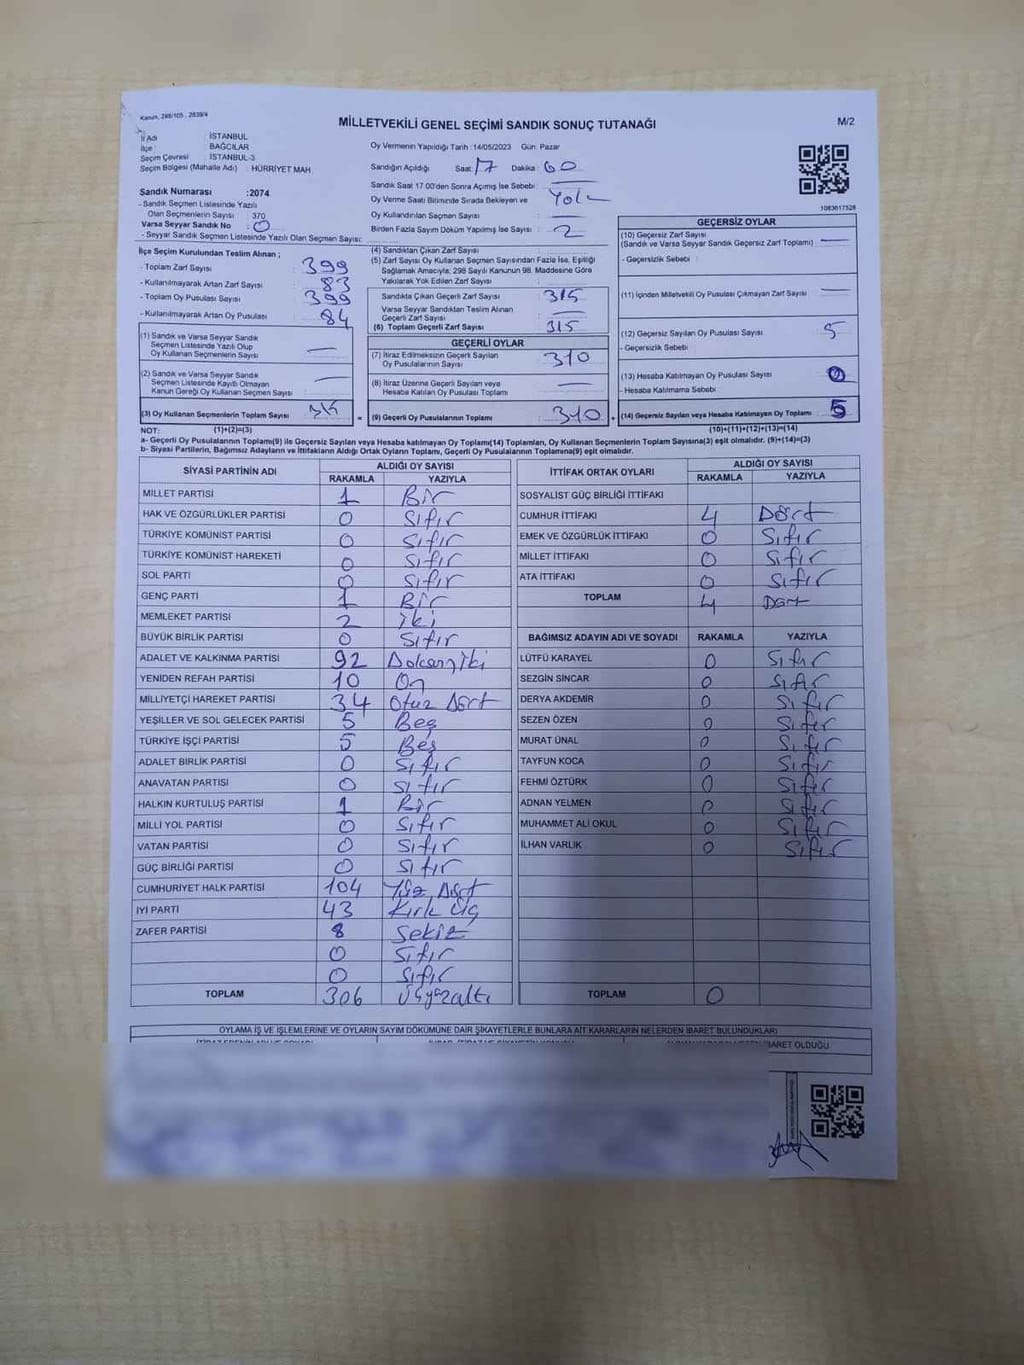 Kanun, 298/105 , 2839/4
MİLLETVEKİLİ GENEL SEÇİMİ SANDIK SONUÇ TUTANAĞI
M/2
İl Adı : İSTANBUL
İlçe : BAĞCILAR
Seçim Çevresi : İSTANBUL-3
Seçim Bölgesi (Mahalle Adı) : HÜRRİYET MAH
Sandık Numarası :2074
-Sandık Seçmen Listesinde Yazılı
Olan Seçmenlerin Sayısı : 370
Varsa Seyyar Sandık No : 0
- Seyyar Sandık Seçmen Listesinde Yazılı Olan Seçmen Sayısı:
Oy Vermenin Yapıldığı Tarih :14/05/2023 Gün: Pazar
Sandığın Açıldığı Saat: 17 Dakika: 00
Sandık Saat 17:00'den Sonra Açımış İse Sebebi :
Oy Verme Saati Bitiminde Sırada Bekleyen ve Yok
Oy Kullandırılan Seçmen Sayısı :
Birden Fazla Sayım Döküm Yapılmış İse Sayısı : 2
1083617528
İlçe Seçim Kurulundan Teslim Alınan ;
- Toplam Zarf Sayısı : 399
- Kullanılmayarak Artan Zarf Sayısı : 83
- Toplam Oy Pusulası Sayısı : 399
- Kullanılmayarak Artan Oy Pusulası : 84
(1) Sandık ve Varsa Seyyar Sandık
Seçmen Listesinde Yazılı Olup
Oy Kullanan Seçmenlerin Sayısı :
(2) Sandık ve Varsa Seyyar Sandık
Seçmen Listesinde Kayıtlı Olmayan
Kanun Gereği Oy Kullanan Seçmen Sayısı :
(3) Oy Kullanan Seçmenlerin Toplam Sayısı :
(1)+(2)=(3)
(4) Sandıktan Çıkan Zarf Sayısı
(5) Zarf Sayısı Oy Kullanan Seçmen Sayısından Fazla İse, Eşitliği
Sağlamak Amacıyla; 298 Sayılı Kanunun 98. Maddesine Göre
Yakılarak Yok Edilen Zarf Sayısı :
Sandıkta Çıkan Geçerli Zarf Sayısı : 315
Varsa Seyyar Sandıktan Teslim Alınan
Geçerli Zarf Sayısı :
(6) Toplam Geçerli Zarf Sayısı : 315
GEÇERLİ OYLAR
(7) İtiraz Edilmeksizin Geçerli Sayılan
Oy Pusulalarının Sayısı : 310
(8) İtiraz Üzerine Geçerli Sayılan veya
Hesaba Katılan Oy Pusulaları Toplamı :
= (9) Geçerli Oy Pusulalarının Toplamı : 310
GEÇERSİZ OYLAR
(10) Geçersiz Zarf Sayısı :
(Sandık ve Varsa Seyyar Sandık Geçersiz Zarf Toplamı)
- Geçersizlik Sebebi :
(11) İçinden Milletvekili Oy Pusulası Çıkmayan Zarf Sayısı :
(12) Geçersiz Sayılan Oy Pusulası Sayısı : 5
- Geçersizlik Sebebi :
(13) Hesaba Katılmayan Oy Pusulası Sayısı :
- Hesaba Katılmama Sebebi :
+ (14) Geçersiz Sayılan veya Hesaba Katılmayan Oy Toplamı : 5
(10)+(11)+(12)+(13)=(14)
NOT:
a- Geçerli Oy Pusulalarının Toplamı(9) ile Geçersiz Sayılan veya Hesaba katılmayan Oy Toplamı(14) Toplamları, Oy Kullanan Seçmenlerin Toplam Sayısına(3) eşit olmalıdır. (9)+(14)=(3)
b- Siyasi Partilerin, Bağımsız Adayların ve İttifakların Aldığı Ortak Oyların Toplamı, Geçerli Oy Pusulalarının Toplamına(9) eşit olmalıdır.
SİYASİ PARTİNİN ADI ALDIĞI OY SAYISI
RAKAMLA YAZIYLA
MİLLET PARTİSİ 1 Bir
HAK VE ÖZGÜRLÜKLER PARTİSİ 0 Sıfır
TÜRKİYE KOMÜNİST PARTİSİ 0 Sıfır
TÜRKİYE KOMÜNİST HAREKETİ 0 Sıfır
SOL PARTİ 0 Sıfır
GENÇ PARTİ 1 Bir
MEMLEKET PARTİSİ 2 iki
BÜYÜK BİRLİK PARTİSİ 0 Sıfır
ADALET VE KALKINMA PARTİSİ 92 Doksan iki
YENİDEN REFAH PARTİSİ 10 On
MİLLİYETÇİ HAREKET PARTİSİ 34 Otuz Dört
YEŞİLLER VE SOL GELECEK PARTİSİ 5 Beş
TÜRKİYE İŞÇİ PARTİSİ 5 Beş
ADALET BİRLİK PARTİSİ 0 Sıfır
ANAVATAN PARTİSİ 0 Sıfır
HALKIN KURTULUŞ PARTİSİ 1 Bir
MİLLİ YOL PARTİSİ 0 Sıfır
VATAN PARTİSİ 0 Sıfır
GÜÇ BİRLİĞİ PARTİSİ 0 Sıfır
CUMHURİYET HALK PARTİSİ 104 Yüz Dört
İYİ PARTİ 43 Kırk Üç
ZAFER PARTİSİ 8 Sekiz
0 Sıfır
0 Sıfır
TOPLAM 306 Üçyüzaltı
İTTİFAK ORTAK OYLARI ALDIĞI OY SAYISI
RAKAMLA YAZIYLA
SOSYALİST GÜÇ BİRLİĞİ İTTİFAKI
CUMHUR İTTİFAKI 4 Dört
EMEK VE ÖZGÜRLÜK İTTİFAKI 0 Sıfır
MİLLET İTTİFAKI 0 Sıfır
ATA İTTİFAKI 0 Sıfır
TOPLAM 4 Dört
BAĞIMSIZ ADAYIN ADI VE SOYADI RAKAMLA YAZIYLA
LÜTFÜ KARAYEL 0 Sıfır
SEZGİN SİNCAR 0 Sıfır
DERYA AKDEMİR 0 Sıfır
SEZEN ÖZEN 0 Sıfır
MURAT ÜNAL 0 Sıfır
TAYFUN KOCA 0 Sıfır
FEHMİ ÖZTÜRK 0 Sıfır
ADNAN YELMEN 0 Sıfır
MUHAMMET ALİ OKUL 0 Sıfır
İLHAN VARLIK 0 Sıfır
TOPLAM 0
OYLAMA İŞ VE İŞLEMLERİNE VE OYLARIN SAYIM DÖKÜMÜNE DAİR ŞİKAYETLERLE BUNLARA AİT KARARLARIN NELERDEN İBARET BULUNDUKLARI
İBARET OLDUĞU